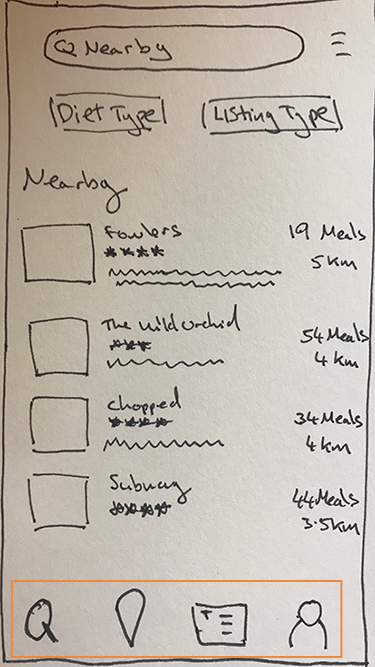 Nearby
Diet Type
Listing Type
Nearby
Fowlers
19 Meals
5 km
The Wild Orchid
54 Meals
4 km
Chopped
34 Meals
4 km
Subway
44 Meals
3.5km